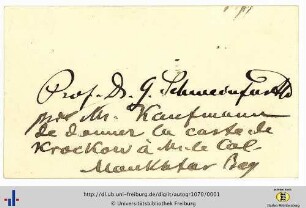 Prof. Dr. G. Schweinfurth
prie Mr. Kaufmann
de donner la carte de
Krockow à Mr le Col
Moukhtar Bey
http://dl.ub.uni-freiburg.de/diglit/autogr1070/0001
© Universitätsbibliothek Freiburg